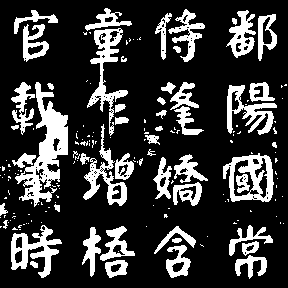 鄱陽國常
侍蓬嬌含
童作增梧
官載筆時